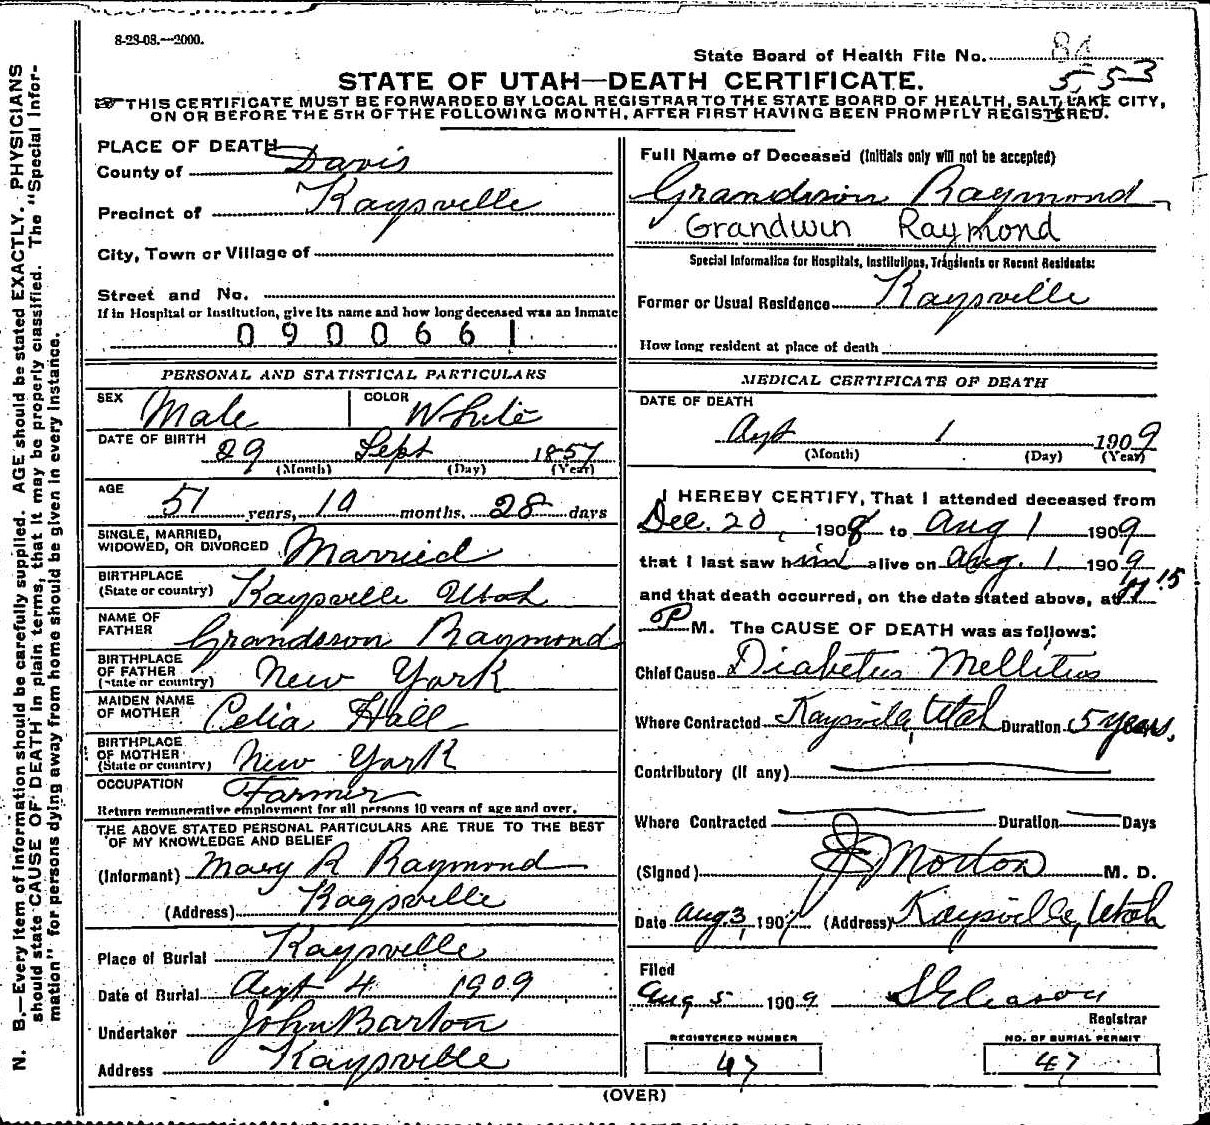 8-23-08.—2000.
State Board of Health File No. 84
553
STATE OF UTAH—DEATH CERTIFICATE.
☞THIS CERTIFICATE MUST BE FORWARDED BY LOCAL REGISTRAR TO THE STATE BOARD OF HEALTH, SALT LAKE CITY,
ON OR BEFORE THE 5TH OF THE FOLLOWING MONTH, AFTER FIRST HAVING BEEN PROMPTLY REGISTERED.
N. B.—Every item of information should be carefully supplied. AGE should be stated EXACTLY. PHYSICIANS
should state CAUSE OF DEATH in plain terms, that it may be properly classified. The "Special Infor-
mation" for persons dying away from home should be given in every instance.
PLACE OF DEATH
County of Davis
Precinct of Kaysville
City, Town or Village of
Street and No.
If in Hospital or Institution, give its name and how long deceased was an Inmate
0 9 0 0 6 6 1
PERSONAL AND STATISTICAL PARTICULARS
SEX Male COLOR White
DATE OF BIRTH 29 Sept 1857
(Month) (Day) (Year)
AGE 51 years, 10 months, 28 days
SINGLE, MARRIED,
WIDOWED, OR DIVORCED Married
BIRTHPLACE
(State or country) Kaysville Utah
NAME OF
FATHER Grandison Raymond
BIRTHPLACE
OF FATHER
(State or country) New York
MAIDEN NAME
OF MOTHER Celia Hall
BIRTHPLACE
OF MOTHER
(State or country) New York
OCCUPATION Farmer
Return remunerative employment for all persons 10 years of age and over.
THE ABOVE STATED PERSONAL PARTICULARS ARE TRUE TO THE BEST
OF MY KNOWLEDGE AND BELIEF
(Informant) Mary R Raymond
(Address) Kaysville
Place of Burial Kaysville
Date of Burial Augt 4 1909
Undertaker John Barton
Address Kaysville
Full Name of Deceased (Initials only will not be accepted)
Grandison Raymond
Grandwin Raymond
Special Information for Hospitals, Institutions, Transients or Recent Residents:
Former or Usual Residence Kaysville
How long resident at place of death
MEDICAL CERTIFICATE OF DEATH
DATE OF DEATH
Augt 1 1909
(Month) (Day) (Year)
I HEREBY CERTIFY, That I attended deceased from
Dec. 20, 1908 to Aug 1 1909
that I last saw him alive on Aug. 1 1909
and that death occurred, on the date stated above, at 11 15
P M. The CAUSE OF DEATH was as follows:
Chief Cause Diabetus Mellitus
Where Contracted Kaysville, Utah Duration 5 years.
Contributory (If any)
Where Contracted Duration Days
(Signed) Morton M. D.
Date Aug 3, 190 (Address) Kaysville, Utah
Filed
Aug 5 1909 S Gleason
Registrar
REGISTERED NUMBER
47
NO. OF BURIAL PERMIT
47
(OVER)